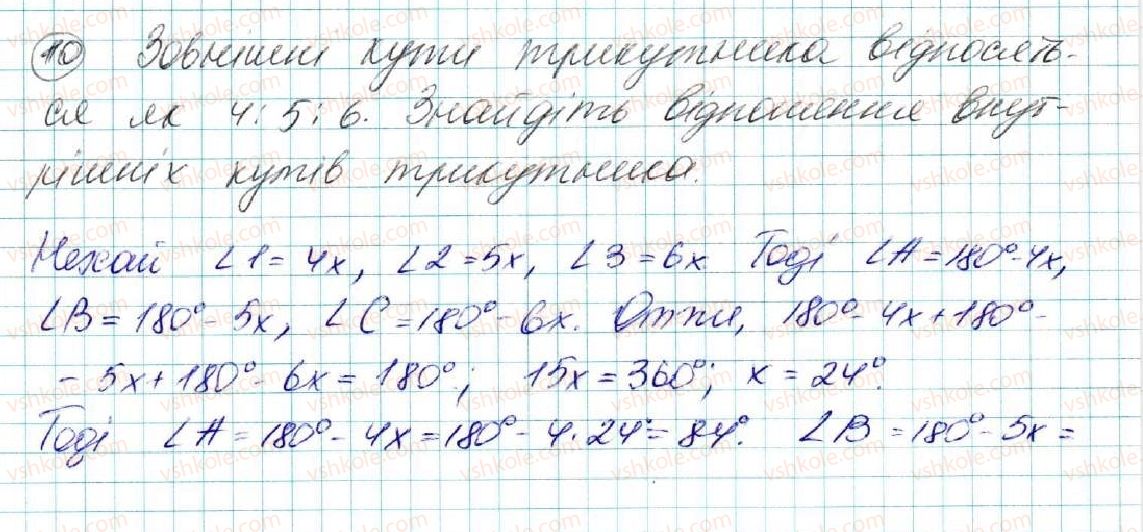 10 Зовнішні кути трикутника відносять-
ся як 4:5:6. Знайдіть відношення внут-
рішніх кутів трикутника.
Нехай ∠1 = 4x, ∠2 = 5x, ∠3 = 6x. Тоді ∠A = 180° - 4x,
∠B = 180° - 5x, ∠C = 180° - 6x. Отже, 180° - 4x + 180° -
- 5x + 180° - 6x = 180°; 15x = 360°; x = 24°.
Тоді ∠A = 180° - 4x = 180° - 4·24° = 84°. ∠B = 180° - 5x =